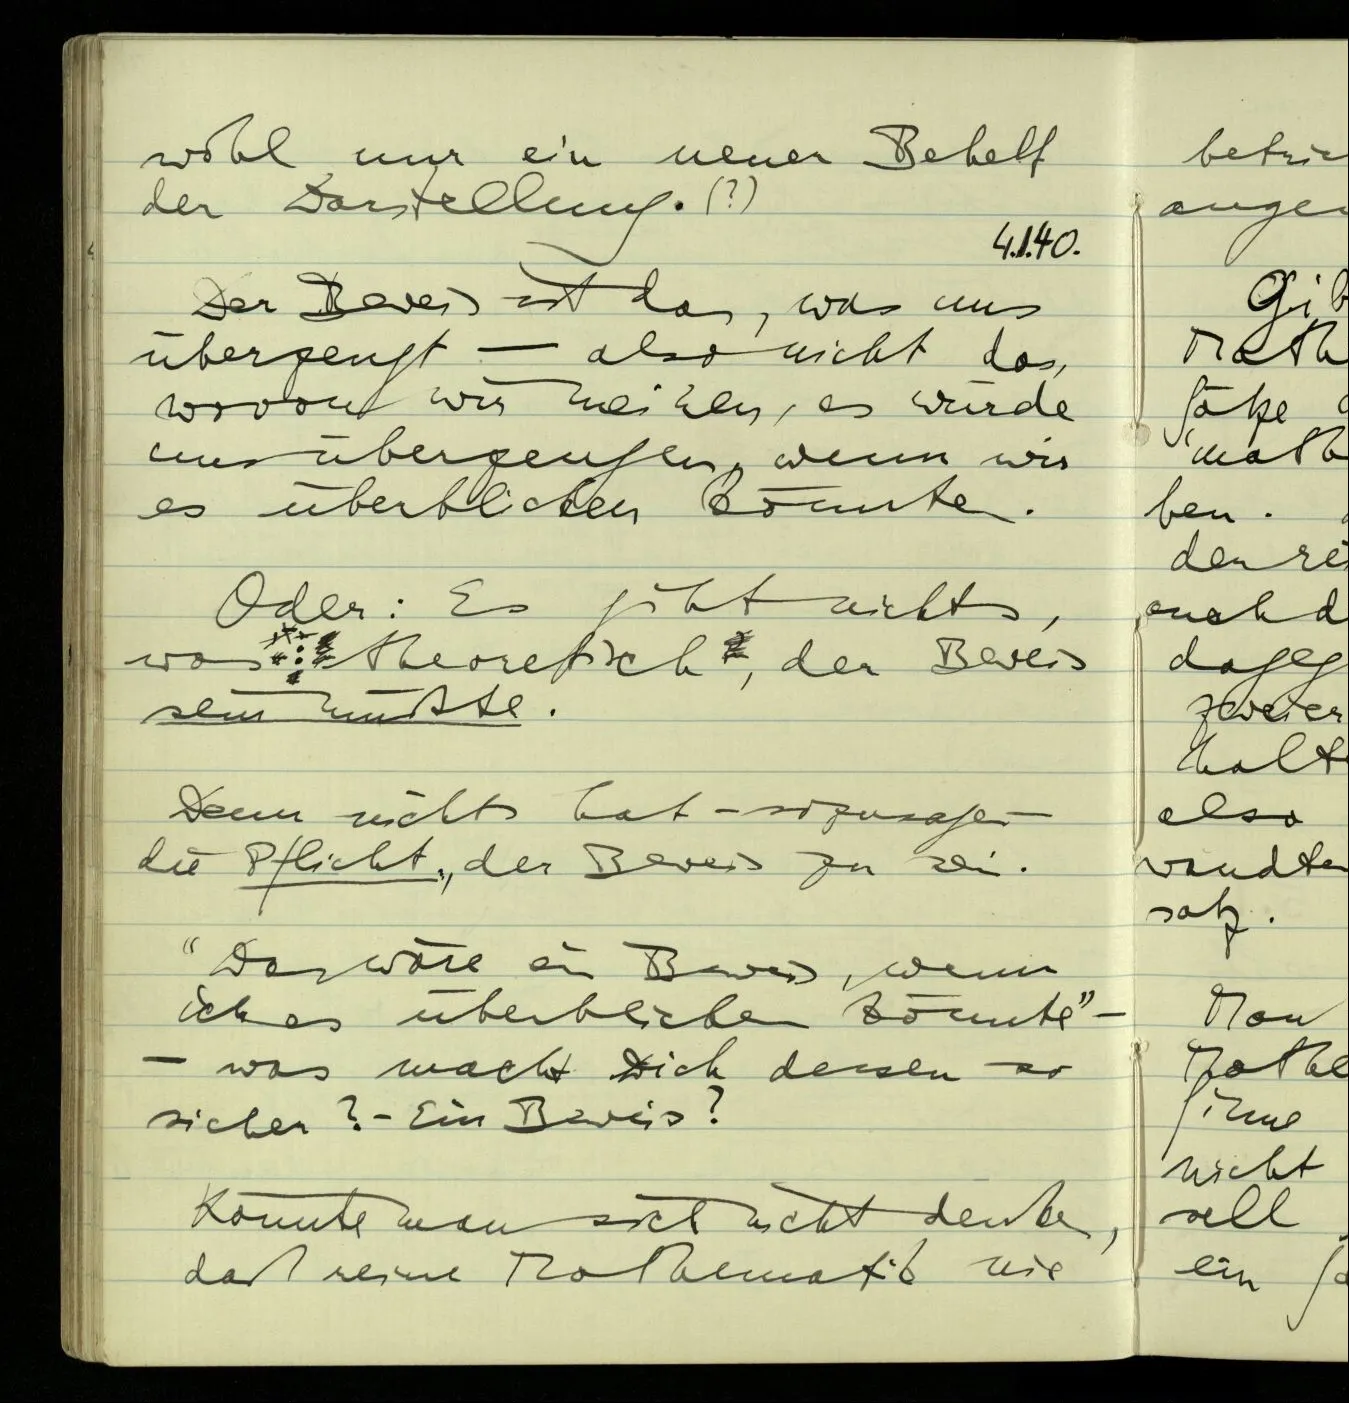 wohl nur ein neuer Behelf
der Darstellung. (?)
4.1.40.
Der Beweis ist das, was uns
überzeugt — also nicht das,
wovon wir meinen, es würde
uns überzeugen, wenn wir
es überblicken könnten.
Oder: Es gibt nichts,
was theoretisch, der Beweis
sein müßte.
Denn nichts hat – sozusagen –
die Pflicht, der Beweis zu sein.
“Das wäre ein Beweis, wenn
ich es überblicken könnte” –
– was macht Dich dessen so
sicher? – Ein Beweis?
Könnte man sich nicht denken,
daß reine Mathematik nie
betrie
angew
Gib
Math
Sätze
math
ben.
den rei
auch d
dageg
zweier
halt
also
wandten
satz.
Man
Mathe
sinne
nicht
sell
ein